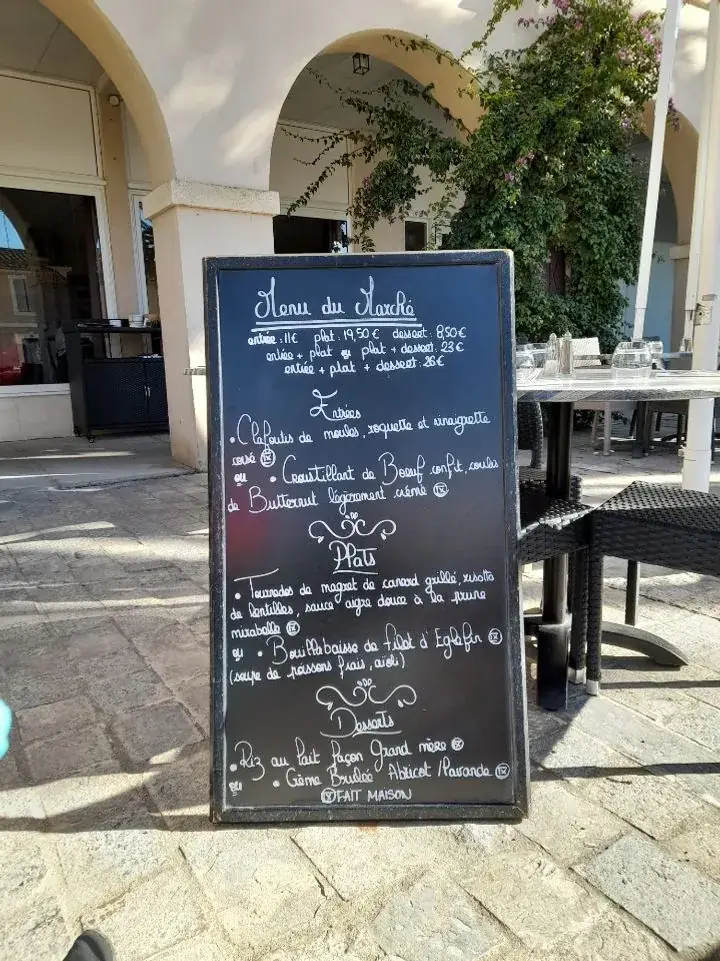 Menu du Marché
entrée : 11€ plat : 19,50€ dessert : 8,50€
entrée + plat ou plat + dessert : 23€
entrée + plat + dessert : 26€
Entrées
• Clafoutis de moules, roquette et vinaigrette
corsé
ou • Croustillant de Boeuf confit, coulis
de Butternut légèrement crémé
Plats
• Tournedos de magret de canard grillé, risotto
de lentilles, sauce aigre douce à la prune
mirabelle
ou • Bouillabaisse de filet d'Eglefin
(soupe de poissons frais, aïoli)
Desserts
• Riz au lait façon Grand mère
ou • Crème Brulée Abricot / Lavande
FAIT MAISON